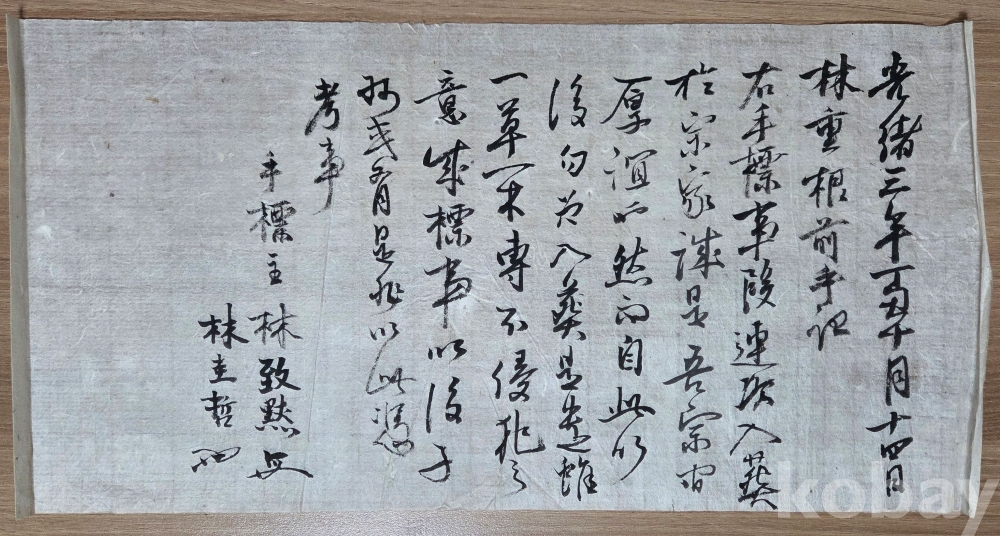 光緒三年丁丑十月十四日
林重根前手記
右手標事段連次入葬
於宗家誠是吾宗間
厚誼而然向自此以
後勿为入葬是遣雖
一草一木專不侵犯之
意成標事以後子
孫或有是非以此憑
考事
手標主 林致默
林圭哲
kobay